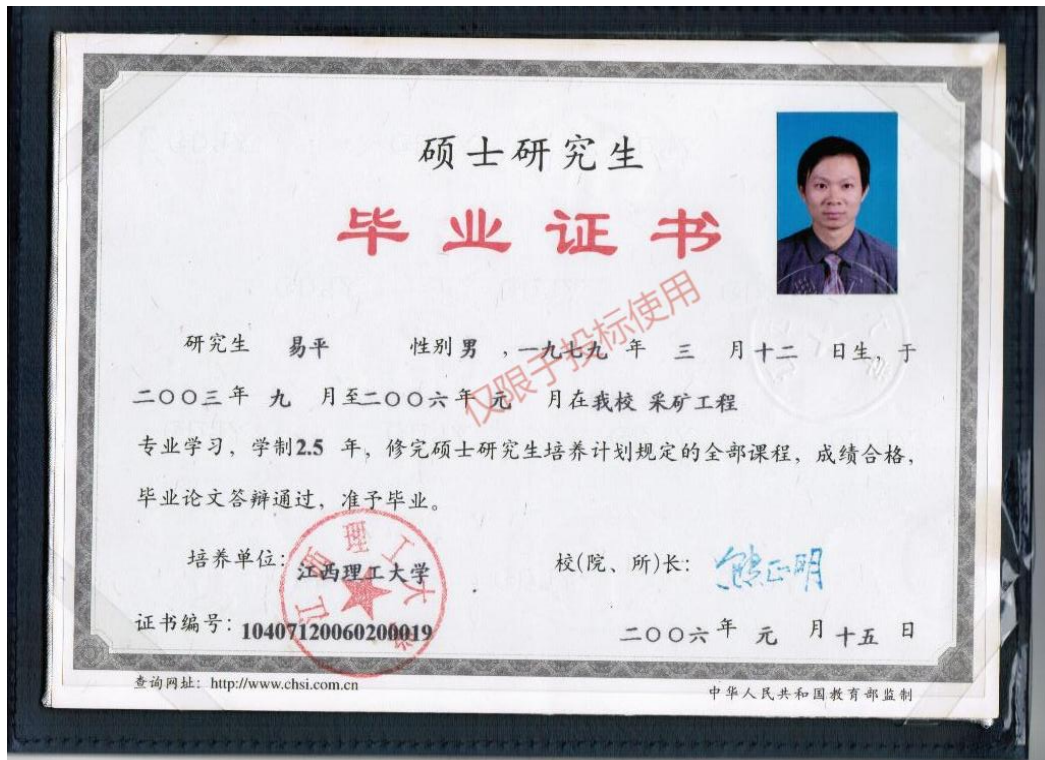 硕士研究生
毕业证书
研究生 易平 性别 男 ，一九七九 年 三 月 十二 日生，于
二〇〇三年 九 月至二〇〇六年 元 月在我校 采矿工程
专业学习，学制2.5 年，修完硕士研究生培养计划规定的全部课程，成绩合格，
毕业论文答辩通过，准予毕业。
仅限于投标使用
培养单位：江西理工大学
江西理工大学
校(院、所)长：熊正明
证书编号：10407120060200019
二〇〇六 年 元 月 十五 日
查询网址：http://www.chsi.com.cn
中华人民共和国教育部监制